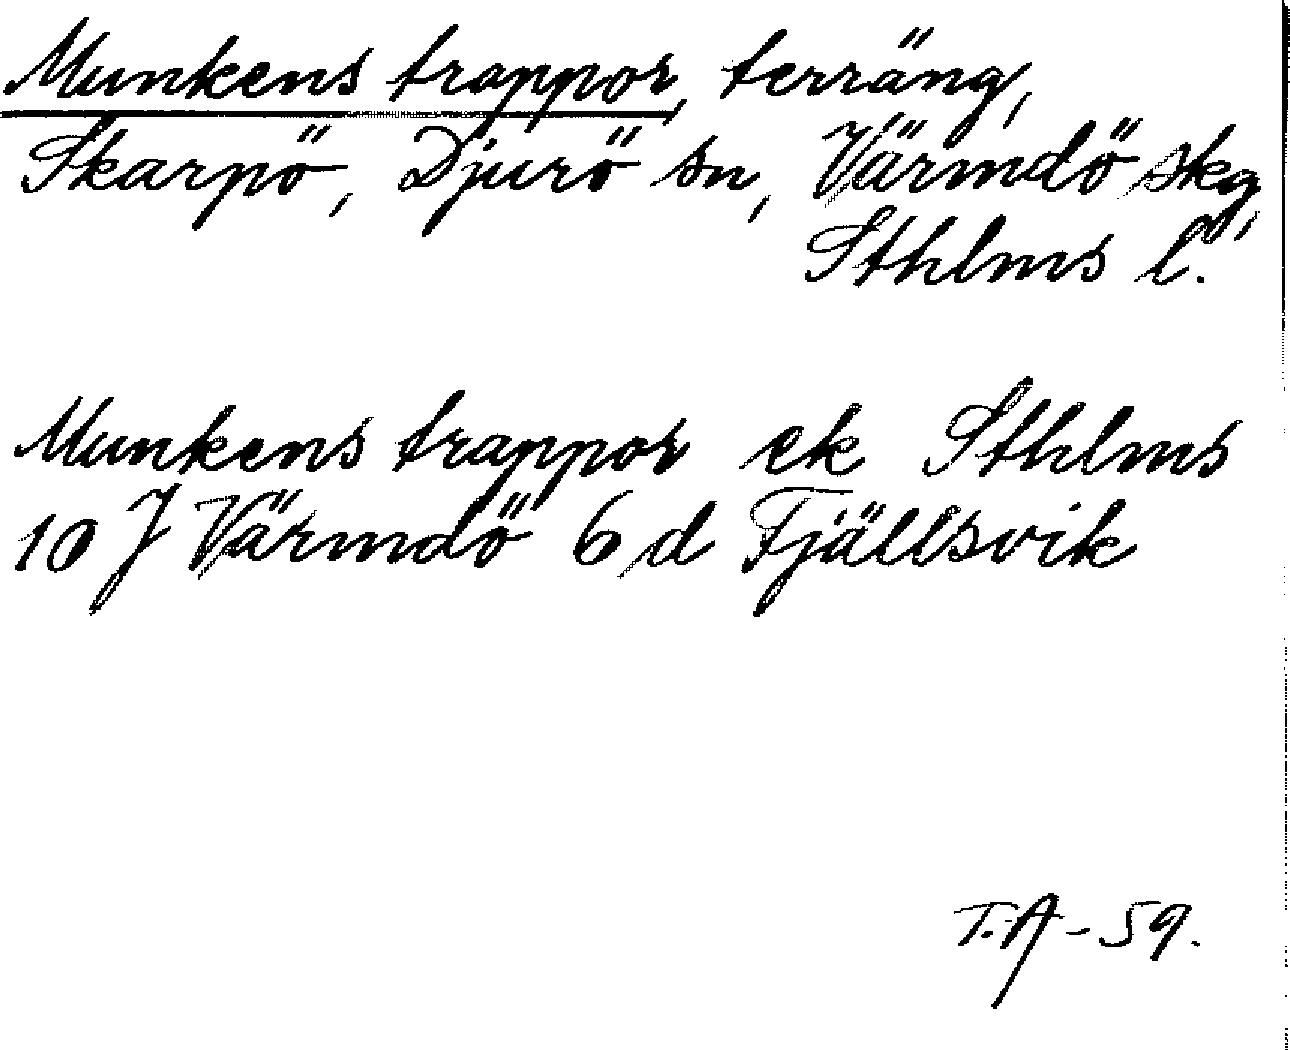 Munkens trappor, terräng,
Skarpö, Djurö sn, Värmdö skg,
Sthlms l.
Munkens trappor ek Sthlms
10 J Värmdö 6 d Fjällsvik
T.A-59.